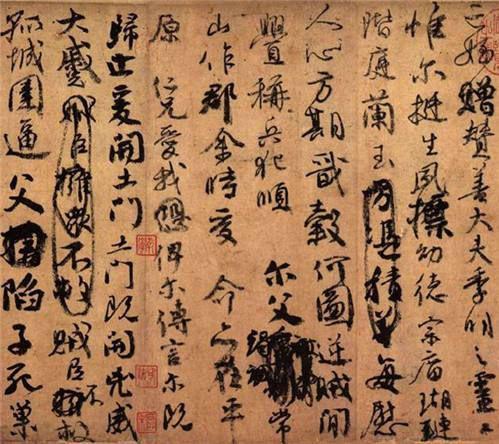 亡姪贈贊善大夫季明之靈
惟尔挺生夙標幼德宗廟瑚璉
階庭蘭玉方憑積善每慰
人心方期戩穀何圖逆賊間
釁稱兵犯順尔父竭誠常
山作郡余時受命亦在平
原仁兄愛我恐俾尔傳言尔既
歸止爰開土門土門既開凶威
大蹙賊臣擁衆不救賊臣不救
孤城圍逼父陷子死巢